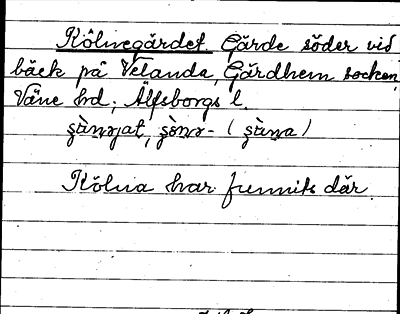 Kölnegärdet Gärde söder vid
bäck på Velanda, Gärdhem socken,
Väne hd, Älfsborgs l.
Kölna har funnits där